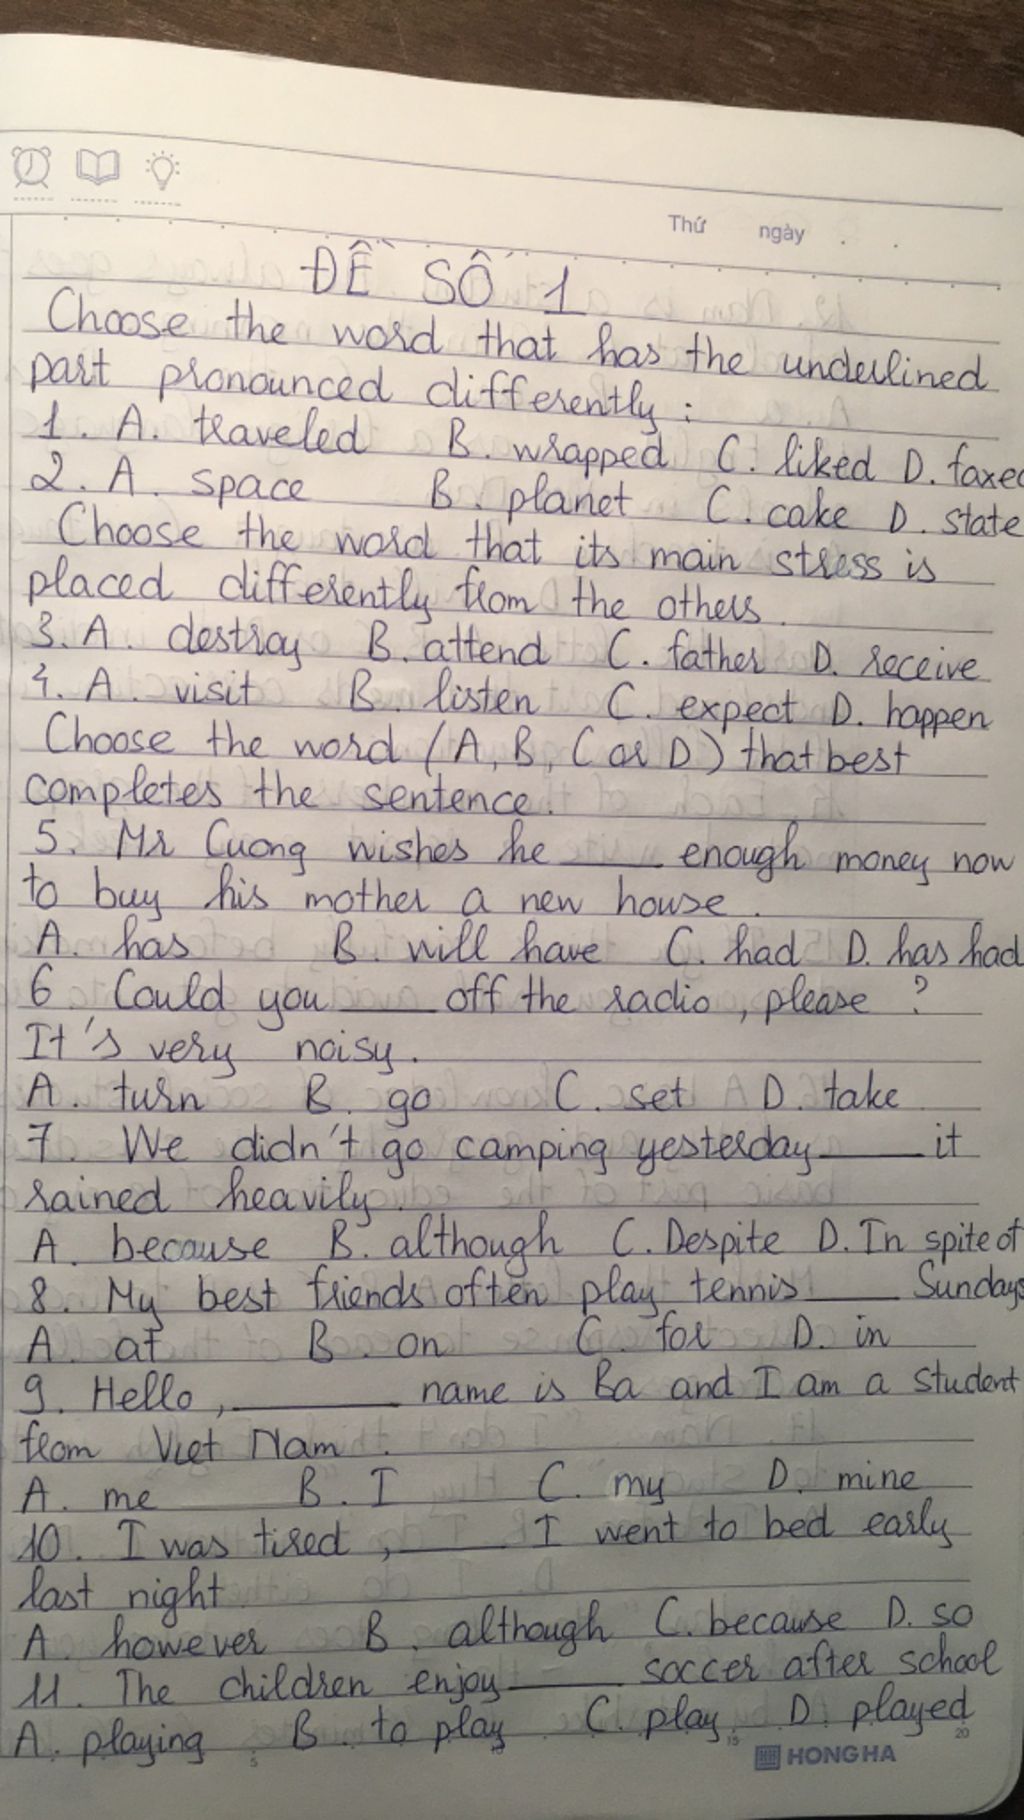 Thứ ngày
ĐỀ SỐ 1
Choose the word that has the underlined
part pronounced differently :
1. A. traveled B. wrapped C. liked D. faxed
2. A. space B. planet C. cake D. state
Choose the word that its main stress is
placed differently from the others.
3. A. destroy B. attend C. father D. receive
4. A. visit B. listen C. expect D. happen
Choose the word (A, B, C or D) that best
completes the sentence.
5. Mr Cuong wishes he ____ enough money now
to buy his mother a new house.
A. has B. will have C. had D. has had
6 Could you ____ off the radio, please ?
It's very noisy.
A. turn B. go C. set D. take
7. We didn't go camping yesterday ____ it
rained heavily.
A. because B. although C. Despite D. In spite of
8. My best friends often play tennis ____ Sundays
A. at B. on C. for D. in
9. Hello, ______ name is Ba and I am a student
from Viet Nam.
A. me B. I C. my D. mine
10. I was tired, ____ I went to bed early
last night.
A. however B. although C. because D. so
11. The children enjoy ____ soccer after school
A. playing B. to play C. play D. played
5 15 20
HONG HA